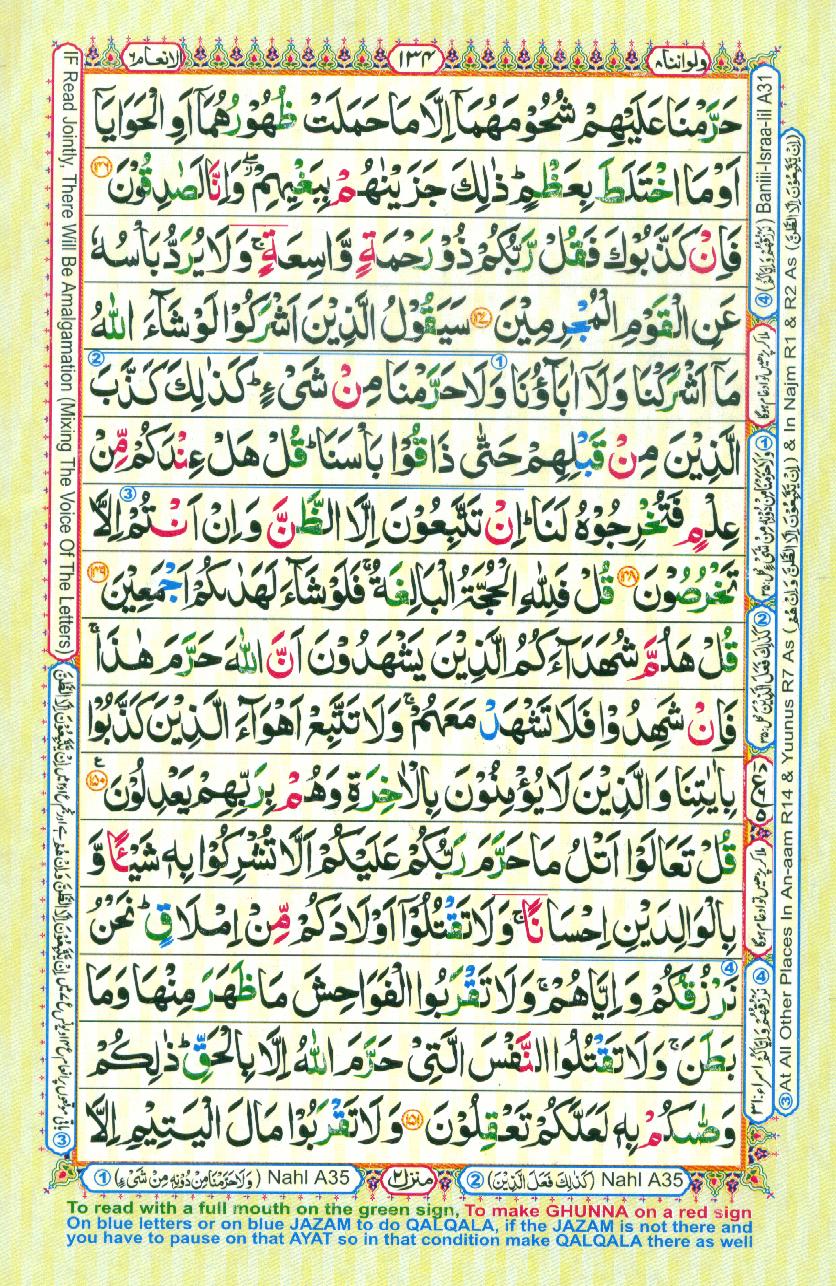 ولواننا ٨
١٣٤
الانعام ٦
حَرَّمْنَا عَلَيْهِمْ شُحُوْمَهُمَاۤ اِلَّا مَا حَمَلَتْ ظُهُوْرُهُمَاۤ اَوِ الْحَوَايَاۤ
اَوْ مَا اخْتَلَطَ بِعَظْمٍ ؕ ذٰلِكَ جَزَيْنٰهُمْ بِبَغْيِهِمْ ۖۗ وَاِنَّا لَصٰدِقُوْنَ ﴿۱۴۶﴾
فَاِنْ كَذَّبُوْكَ فَقُلْ رَّبُّكُمْ ذُوْ رَحْمَةٍ وَّاسِعَةٍ ۚ وَلَا يُرَدُّ بَاْسُهٗ
عَنِ الْقَوْمِ الْمُجْرِمِيْنَ ﴿۱۴۷﴾ سَيَقُوْلُ الَّذِيْنَ اَشْرَكُوْا لَوْ شَآءَ اللّٰهُ
مَاۤ اَشْرَكْنَا وَلَاۤ اٰبَآؤُنَا وَلَا حَرَّمْنَا مِنْ شَيْءٍ ؕ كَذٰلِكَ كَذَّبَ
الَّذِيْنَ مِنْ قَبْلِهِمْ حَتّٰى ذَاقُوْا بَاْسَنَا ؕ قُلْ هَلْ عِنْدَكُمْ مِّنْ
عِلْمٍ فَتُخْرِجُوْهُ لَنَا ؕ اِنْ تَتَّبِعُوْنَ اِلَّا الظَّنَّ وَاِنْ اَنْتُمْ اِلَّا
تَخْرُصُوْنَ ﴿۱۴۸﴾ قُلْ فَلِلّٰهِ الْحُجَّةُ الْبَالِغَةُ ۚ فَلَوْ شَآءَ لَهَدٰىكُمْ اَجْمَعِيْنَ ﴿۱۴۹﴾
قُلْ هَلُمَّ شُهَدَآءَكُمُ الَّذِيْنَ يَشْهَدُوْنَ اَنَّ اللّٰهَ حَرَّمَ هٰذَا ۚ
فَاِنْ شَهِدُوْا فَلَا تَشْهَدْ مَعَهُمْ ۚ وَلَا تَتَّبِعْ اَهْوَآءَ الَّذِيْنَ كَذَّبُوْا
بِاٰيٰتِنَا وَالَّذِيْنَ لَا يُؤْمِنُوْنَ بِالْاٰخِرَةِ وَهُمْ بِرَبِّهِمْ يَعْدِلُوْنَ ﴿۱۵۰﴾
قُلْ تَعَالَوْا اَتْلُ مَا حَرَّمَ رَبُّكُمْ عَلَيْكُمْ اَلَّا تُشْرِكُوْا بِهٖ شَيْـًٔا وَّ
بِالْوَالِدَيْنِ اِحْسَانًا ۚ وَلَا تَقْتُلُوْۤا اَوْلَادَكُمْ مِّنْ اِمْلَاقٍ ؕ نَحْنُ
نَرْزُقُكُمْ وَاِيَّاهُمْ ۚ وَلَا تَقْرَبُوا الْفَوَاحِشَ مَا ظَهَرَ مِنْهَا وَمَا
بَطَنَ ۚ وَلَا تَقْتُلُوا النَّفْسَ الَّتِيْ حَرَّمَ اللّٰهُ اِلَّا بِالْحَقِّ ؕ ذٰلِكُمْ
وَصّٰىكُمْ بِهٖ لَعَلَّكُمْ تَعْقِلُوْنَ ﴿۱۵۱﴾ وَلَا تَقْرَبُوْا مَالَ الْيَتِيْمِ اِلَّا
① (وَلَا حَرَّمْنَا مِنْ دُوْنِهٖ مِنْ شَيْءٍ) Nahl A35
منزل ٢
② (كَذٰلِكَ فَعَلَ الَّذِيْنَ) Nahl A35
IF Read Jointly, There Will Be Amalgamation (Mixing The Voice Of The Letters)
④ (نَرْزُقُهُمْ وَاِيَّاكُمْ) Baniii-Israa-Iil A31
③ At All Other Places In An-aam R14 & Yuunus R7 As (اِنْ يَّتَّبِعُوْنَ اِلَّا الظَّنَّ وَاِنْ هُمْ) & In Najm R1 & R2 As (اِنْ يَّتَّبِعُوْنَ اِلَّا الظَّنَّ)
To read with a full mouth on the green sign, To make GHUNNA on a red sign
On blue letters or on blue JAZAM to do QALQALA, if the JAZAM is not there and
you have to pause on that AYAT so in that condition make QALQALA there as well